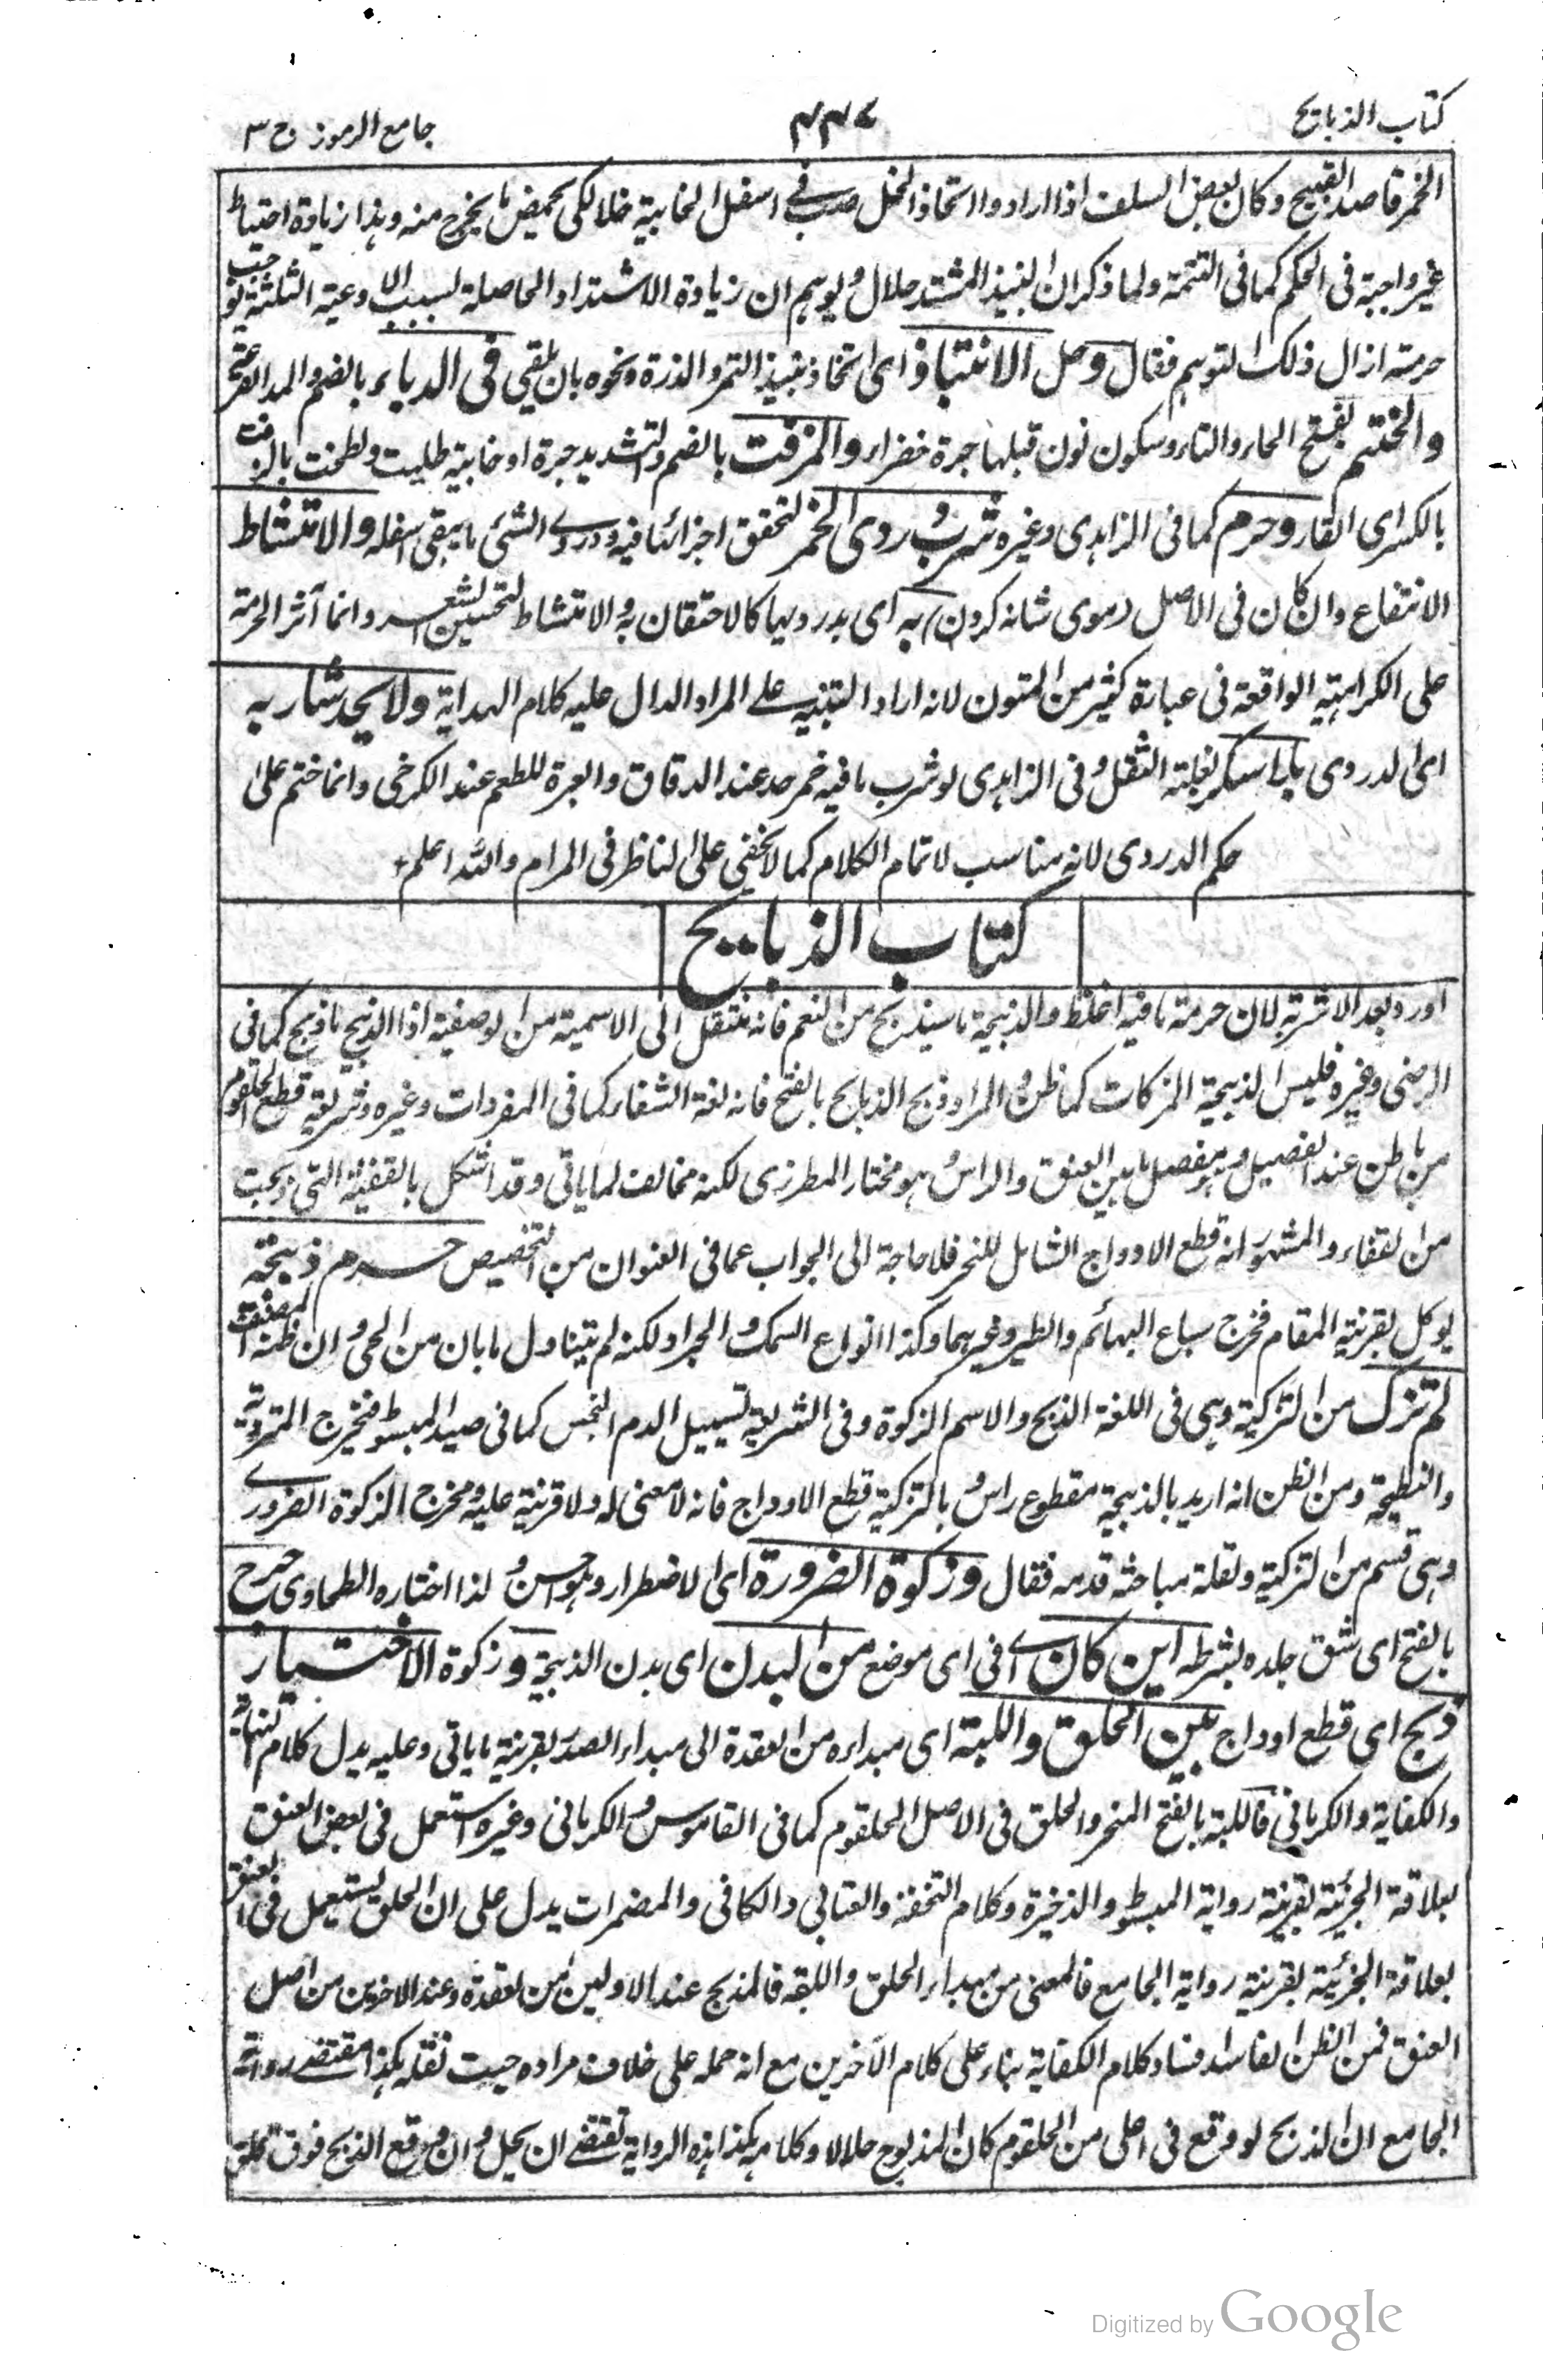 كتاب الذبايح
٤٤٧
جامع الرموز ج ٣
الخمر قاصد القبيح وكان بعض السلف اذا ارادوا استحاذ الخل صب فى اسفل الخابية خلا لكى يحمض ما يخرج منه وهذا زيادة احتياط
غير واجبة فى الحكم كما فى التتمة ولما ذكر ان النبيذ المشتد حلال ويوهم ان زيادة الاشتداد الحاصلة بسبب الاوعية الثلثة يوجب
حرمته ازال ذلك التوهم فقال وحل الانتباذ اى اتخاذ نبيذ التمر والذرة ونحوه بان يلقى فى الدباء بالضم والمد القرع
والحنتم بفتح الحاء والتاء وسكون نون قبلها جرة خضراء والمزفت بالضم والتشديد جرة او خابية طليت ولطخت بالزفت
بالكسر اى القار وحرم كما فى الزاهدى وغيره شرب دردى الخمر لتحقق اجزائها فيه ودردى الشئ ما يبقى اسفله والامتشاط
الانتفاع وان كان فى الاصل (موى شانه كردن) به اى بدرديها كالاحتقان به والامتشاط لتحسين الشعر وانما آثر الحرمة
على الكراهية الواقعة فى عبارة كثير من المتون لانه اراد التنبيه على المراد الدال عليه كلام الهداية ولا يحد شاربه
اى الدردى بلا سكر لغلبة الثفل وفى الزاهدى لو شرب ما فيه خمر حد عند الدقاق والعبرة للطعم عند الكرخى وانما ختم على
حكم الدردى لانه مناسب لاتمام الكلام كما لا يخفى على الناظر فى المرام والله اعلم
كتاب الذبايح
اورد بعد الاشربة لان حرمة ما فيه اغلظ والذبيحة ما سيذبح من النعم فانه منتقل الى الاسمية من الوصفية اذا الذبيح ما ذبح كما فى
الرضى وغيره فليس الذبيحة المزكات كما ظن والمراد ذبح الذبايح بالفتح فانه لغة الشفار كما فى المفردات وغيره وشريعة قطع الحلقوم
من باطن عند الفصيل وهو مفصل ما بين العنق والراس هو مختار المطرزى لكنه مخالف لما ياتى وقد اشكل بالقفية التى ذبحت
من القفاء والمشهور انه قطع الاوداج الشامل للنحر فلا حاجة الى الجواب عما فى العنوان من التخصيص حرم ذبيحة
يوكل بقرينة المقام فخرج سباع البهائم والطير وغيرهما وكذا انواع السمك والجراد لكنه لم يتناول ما بان من الحى وان ظنه المصنف
لم تزك من التزكية وهى فى اللغة الذبح والاسم الزكوة وفى الشريعة تسييل الدم النجس كما فى صيد المبسوط فيخرج المتردية
والنطيحة ومن الظن انه اريد بالذبيحة مقطوع راس بالتزكية قطع الاوداج فانه لا معنى له ولا قرينة عليه ومخرج الزكوة الضرورى
وهى قسم من التزكية ولقلة مباحثه قدمه فقال وزكوة الضرورة اى الاضطرار وهو احسن ولذا اختاره الطحاوى جرح
بالفتح اى شق جلده بشرطه اين كان اى فى اى موضع من البدن اى بدن الذبيحة وزكوة الاختيار
ذبح اى قطع اوداج بين الحلق واللبة اى مبداءه من العقدة الى مبداء الصدر بقرينة ما ياتى وعليه يدل كلام النهاية
والكفاية والكرمانى فاللبة بالفتح المنحر والحلق فى الاصل الحلقوم كما فى القاموس والكرمانى وغيره استعمل فى بعض العنق
بعلاقة الجزئية بقرينة رواية المبسوط والذخيرة وكلام التحفة والعتابى والكافى والمضمرات يدل على ان الحلق يستعمل فى العنق
بعلاقة الجزئية بقرينة رواية الجامع فالمعنى من مبداء الحلق واللبة فالمذبح عند الاولين من العقدة وعند الاخرين من اصل
العنق فمن الظن الفاسد فساد كلام الكفاية بناء على كلام الآخرين مع انه حمله على خلاف مراده حيث نقله هكذا مقتضى رواية
الجامع ان الذبح لو وقع فى اعلى من الحلقوم كان المذبوح حلالا وكلامه هكذا هذه الرواية تقتضى ان يحل وان وقع الذبح فوق الحلق
Digitized by Google